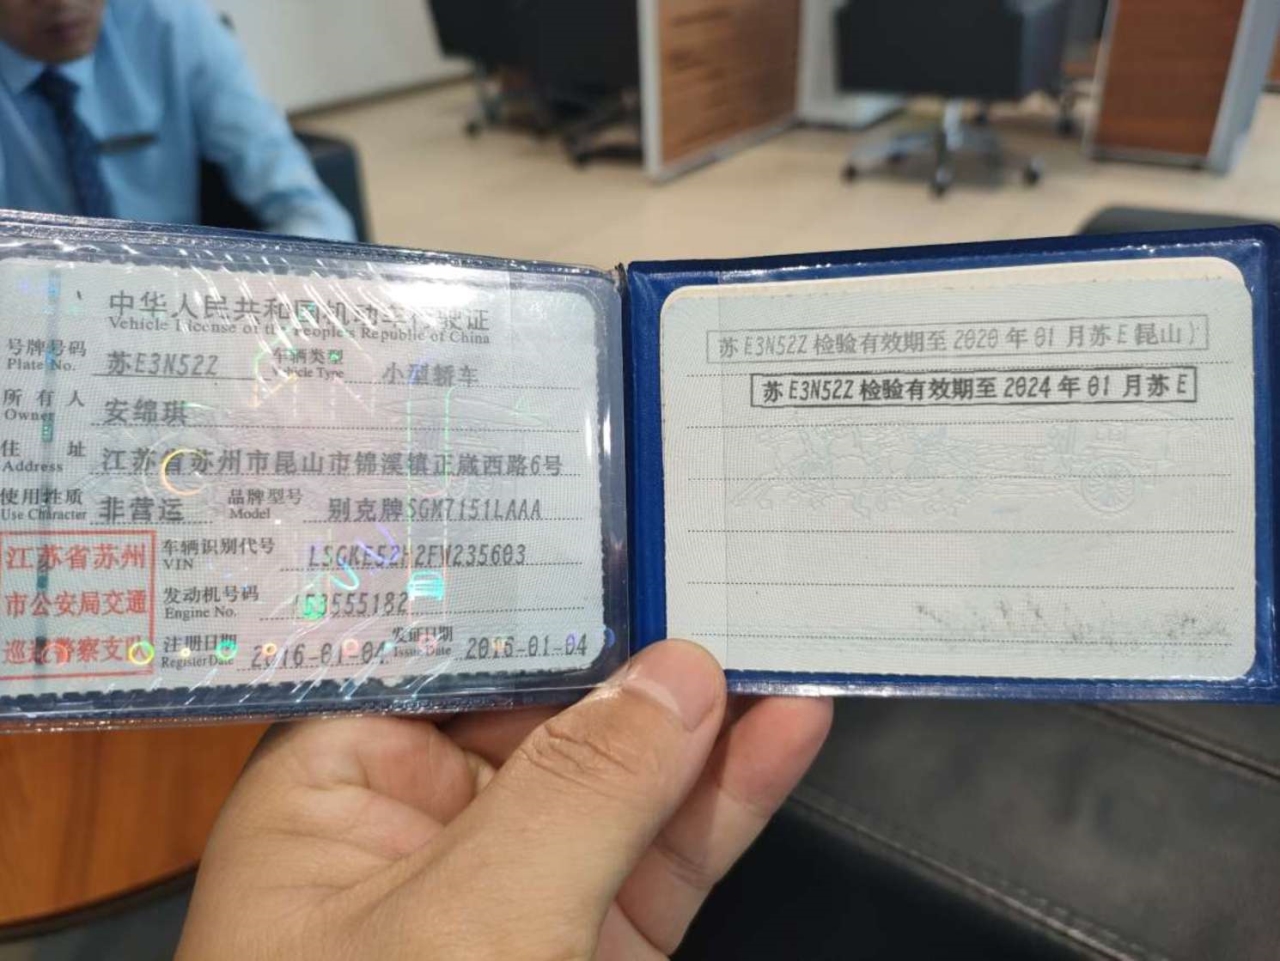 中华人民共和国机动车行驶证
Vehicle License of the People's Republic of China
号牌号码 苏E3N52Z 车辆类型 小型轿车
Plate No. Vehicle Type
所有人 安绵琪
Owner
住址 江苏省苏州市昆山市锦溪镇正崴西路6号
Address
使用性质 非营运 品牌型号 别克牌SGM7151LAAA
Use Character Model
江苏省苏州
市公安局交通
巡逻警察支队
车辆识别代号 LSGKE52H2FW235603
VIN
发动机号码 153555182
Engine No.
注册日期 2016-01-04 发证日期 2016-01-04
Register Date Issue Date
苏E3N52Z检验有效期至2020年01月苏E昆山)
苏E3N52Z检验有效期至2024年01月苏E